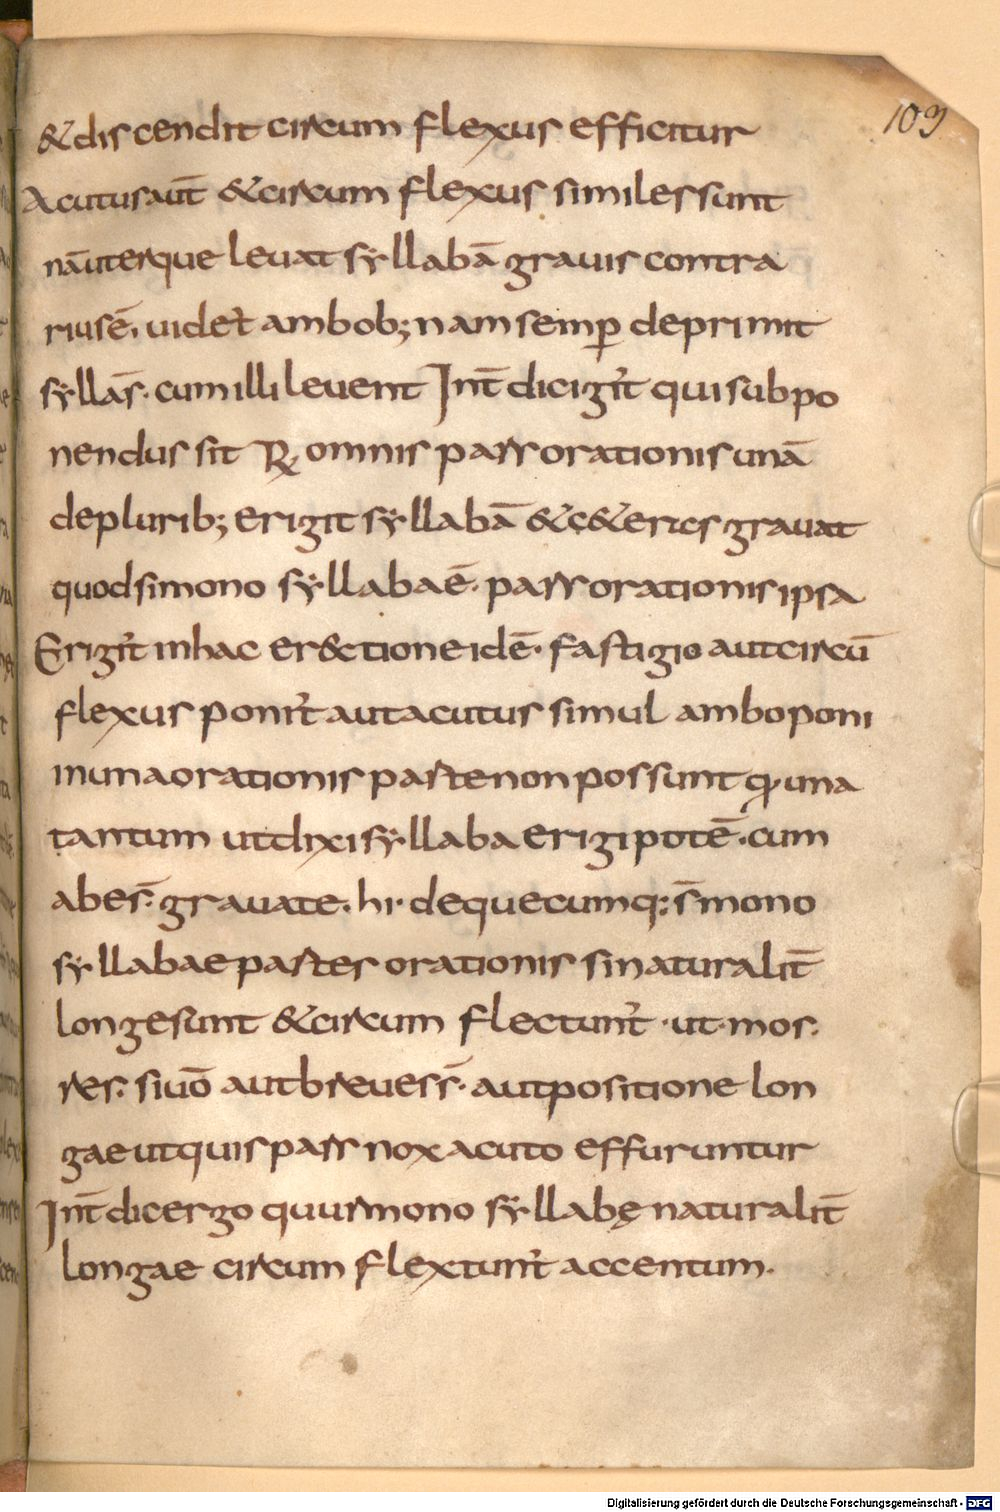 109
&discendit circum flexus efficitur
Acutus aut̄ &circum flexus similes sunt
nā uterque leuat syllabā grauis contra
rius ē. uidet̉ ambob; nam semꝑ deprimit
syllas̄. cum illi leuent Int̄ dic igit̉ qui subpo
nendus sit ℞ omnis pars orationis unā
depluríb; erigit syllabā &c&eras grauat
quod si mono syllaba ē. pars orationis ipsa
Erigit̉ inhac er&ctione idē. fastigio aut circū
flexus ponit̉ aut acutus simul ambo poni
in una orationis parte non possunt ꝙ una
tantum ut dixi syllaba erigi potē. cum
abes̄. grauate. hr. de quecumq: s̄ mono
syllabae partes orationis si naturalit̄
longe sunt &circum flectunt̉. ut. mos.
res. si uō aut breues s̄. aut positione lon
gae ut quis pars nox acuto effuruntur
Int̄ dic ergo quur mono syllabę naturalit̄
longae circum flextunt̉ accentum.
Digitalisierung gefördert durch die Deutsche Forschungsgemeinschaft - DFG